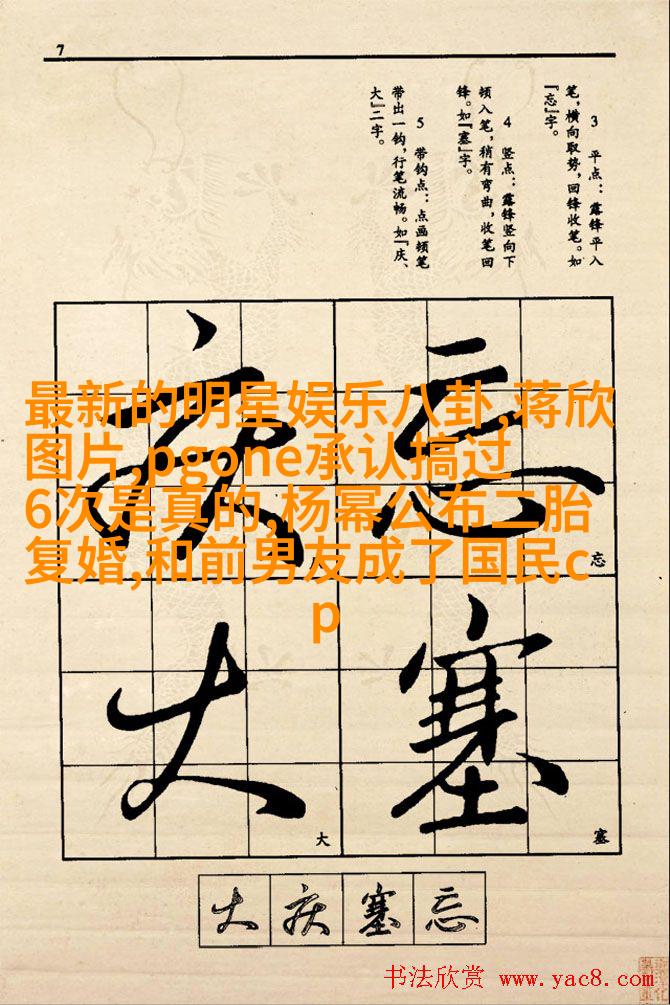 7
3 平点：露锋平入
笔，横向取势，回锋收笔。如
『忘』字。
4 竖点：露锋竖向下
顿入笔，稍有弯曲，收笔回
锋。如『塞』字。
5 带钩点：点画顿笔
带出一钩，行笔流畅。如『庆、
大』二字。
最新的明星娱乐八卦,蒋欣
图片,pgone承认搞过
6次是真的,杨幂公布二胎
复婚,和前男友成了国民c
p
庆 忘
忘
大 塞
大 塞
大 庆 塞 忘
书法欣赏 www.yac8.com